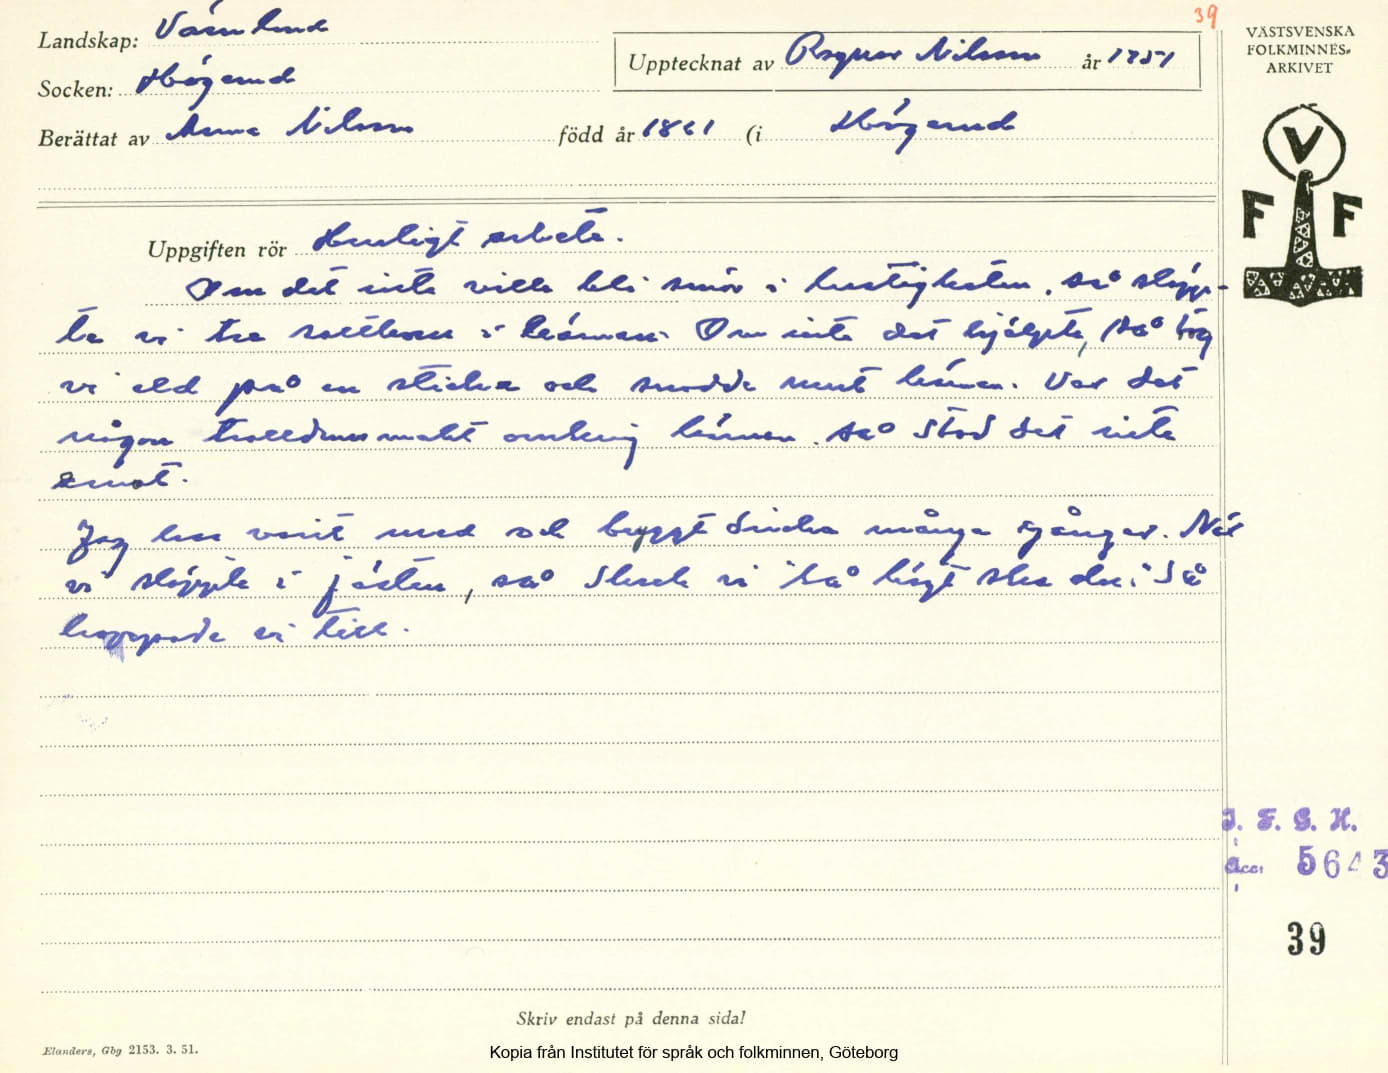 39
Landskap: Värmland
VÄSTSVENSKA
FOLKMINNES-
ARKIVET
Upptecknat av Ragnar Nilsson år 1951
Socken: Högerud
Berättat av Anna Nilsson född år 1861 (i Högerud
V
F F
Uppgiften rör Husligt arbete.
Om det inte ville bli smör i hastigheten, så släpp-
te vi tre i kärnan. Om inte det hjälpte, så tog
vi eld på en sticka och snodde runt kärnan. Var det
någon trolldomsmakt omkring kärnan, så stod det inte
emot.
Jag har varit med och bryggt dricka många gånger. När
vi släppte i jästen, så skrek vi så högt ska du! Så
hoppade vi till.
I. F. G. H.
Acc: 5643
39
Skriv endast på denna sida!
Elanders, Gbg 2153. 3. 51.
Kopia från Institutet för språk och folkminnen, Göteborg